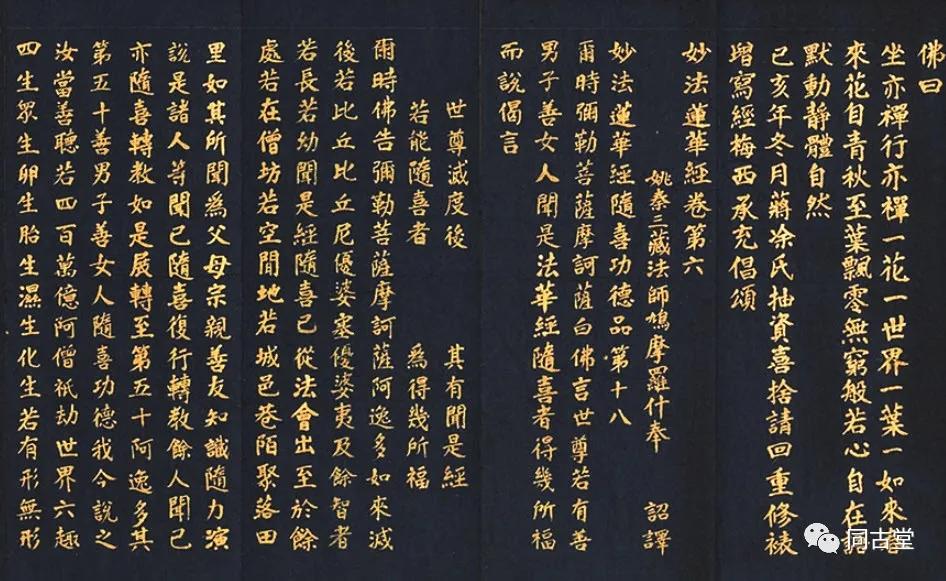 佛曰
坐亦禪行亦禪一花一世界一葉一如來春
來花自青秋至葉飄零無窮般若心自在語
默動靜體自然
己亥年冬月蔣凃氏抽資喜捨請回重修裱
增寫經梅西承充倡頌
妙法蓮華經卷第六
姚秦三藏法師鳩摩羅什奉 詔譯
妙法蓮華經隨喜功德品第十八
爾時彌勒菩薩摩訶薩白佛言世尊若有善
男子善女人聞是法華經隨喜者得幾所福
而說偈言
世尊滅度後 其有聞是經
若能隨喜者 為得幾所福
爾時佛告彌勒菩薩摩訶薩阿逸多如來滅
後若比丘比丘尼優婆塞優婆夷及餘智者
若長若幼聞是經隨喜已從法會出至於餘
處若在僧坊若空閒地若城邑巷陌聚落田
里如其所聞為父母宗親善友知識隨力演
說是諸人等聞已隨喜復行轉教餘人聞已
亦隨喜轉教如是展轉至第五十阿逸多其
第五十善男子善女人隨喜功德我今說之
汝當善聽若四百萬億阿僧祇劫世界六趣
四生眾生卵生胎生濕生化生若有形無形
同古堂